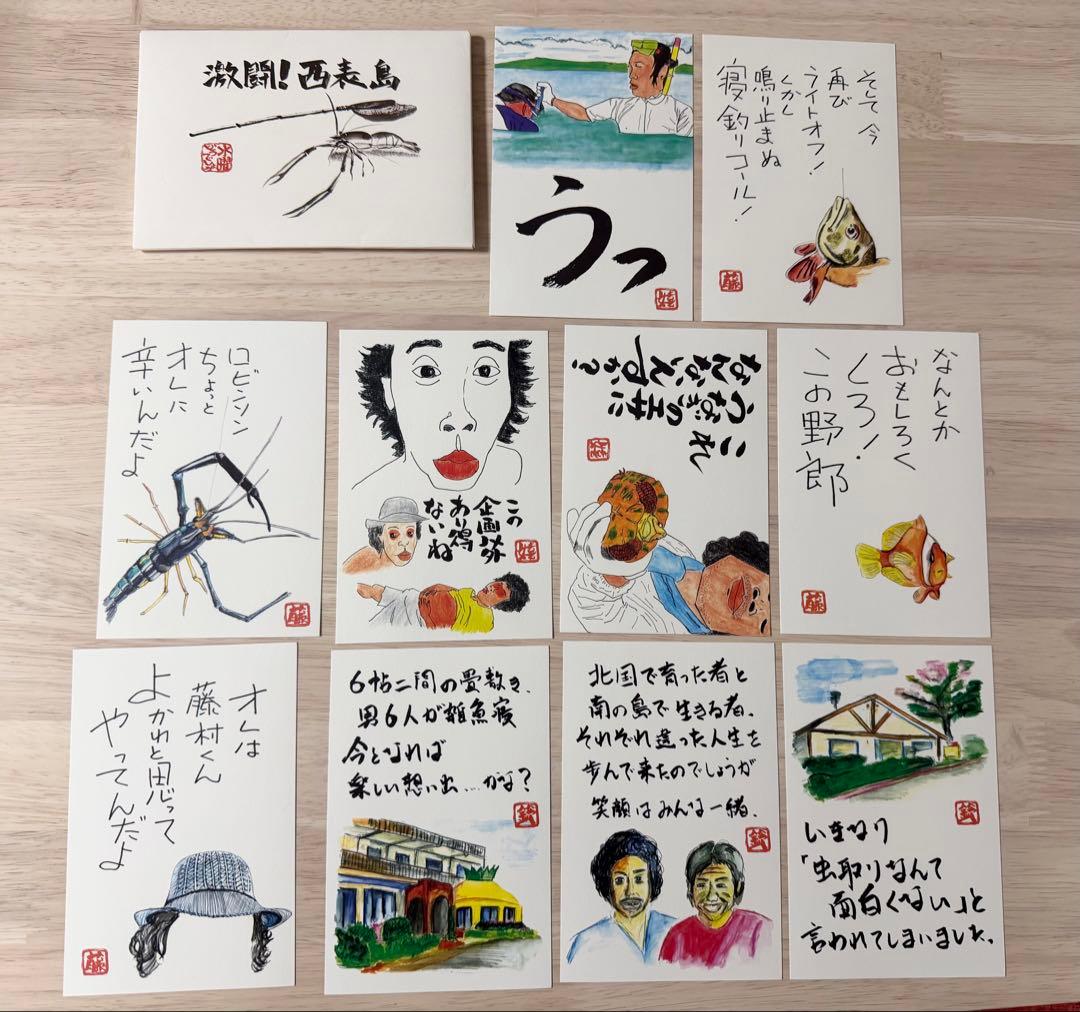 激闘!西表島
水曜
うっ
そして今
再び
ライトオフ!
しかし
鳴り止まぬ
寝釣りコール!
藤
ロビンソン
ちょっと
オレに
辛いんだよ
藤
この
企画弥
あり得
ないね
これ
うなぎのエサに
なんないんすか?
なんとか
おもしろく
しろ!
この野郎
藤
オレは
藤村くん
よかれと思って
やってんだよ
藤
6帖二間の畳敷き、
男6人が雑魚寝
今となれば
楽しい想い出…かな?
鈴
北国で育った者と
南の島で生きる者、
それぞれ違った人生を
歩んで来たのでしょうが
笑顔はみんな一緒、
鈴
いきなり
「虫取りなんて
面白くない」と
言われてしまいました。
鈴